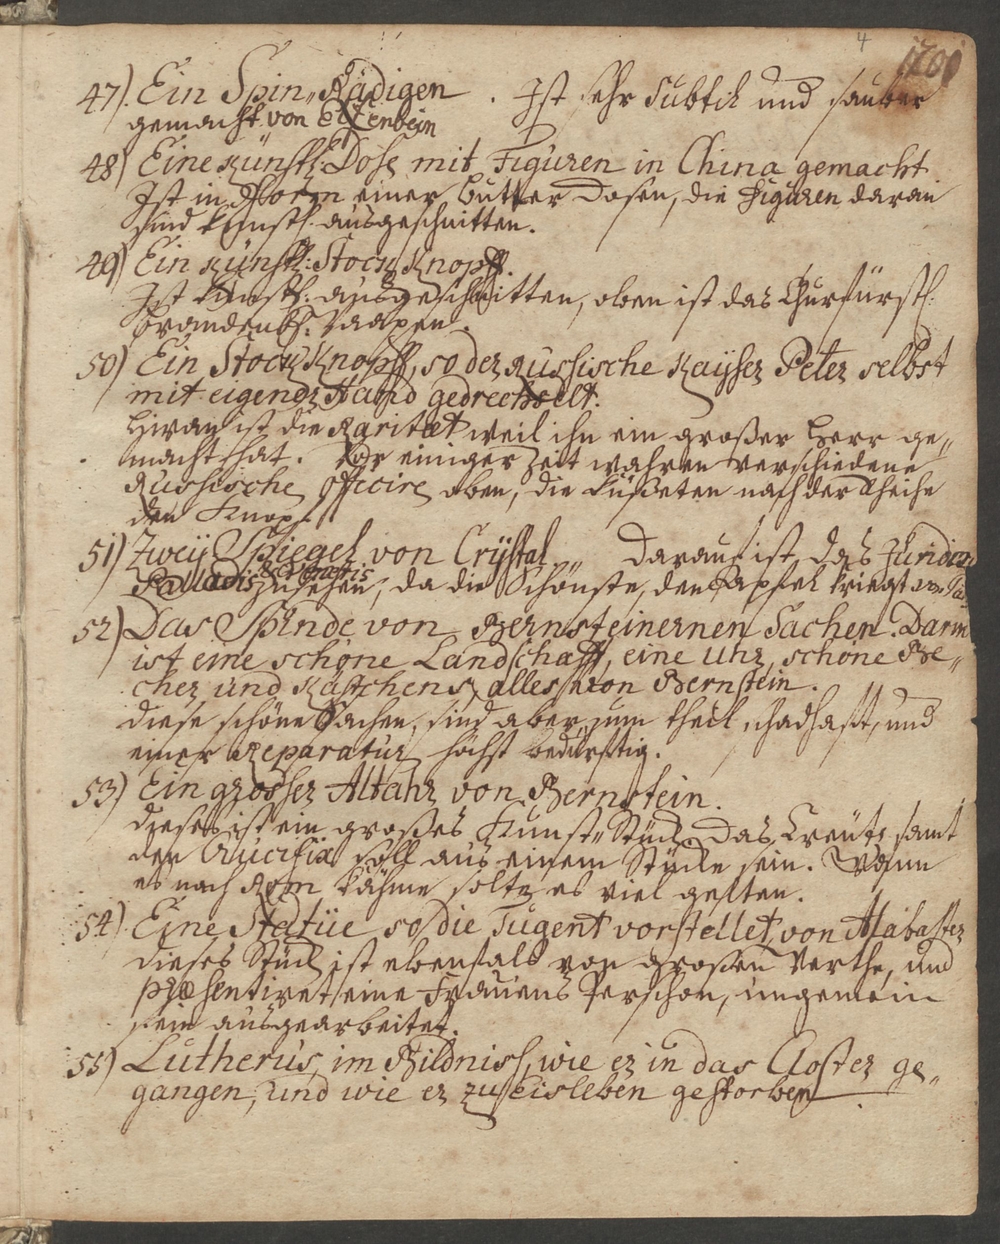 4
47). Ein Spin„Rädigen. Ist sehr subtil und sauber
gemacht von Elfenbein
48) Eine künstl: Dose mit Figuren in China gemacht.
Ist in Form einer Butter Dosen, die Figuren daran
sind künstl. ausgeschnitten.
49) Ein künstl: Stock Knopff.
Ist künstl. ausgeschnitten, oben ist das Churfürstl.
Brandenb. Waapen.
50) Ein Stock Knopff, so der Russische Kaÿser Peter selbst
mit eigendr Hand gedrechselt.
Hiran ist die Raritæt weil ihn ein großer Herr ge„
macht hat. Vor einiger Zeit wahren verschiedene
Russische Officire oben, die küßeten nach der Reihe
den Knopf.
51) Zweÿ Spiegel von Crÿstal„ Darauf ist das
Palladis zusehen, da die Schönste, den Apfel kriegt
52) Das Spinde von Bernsteinernen Sachen. Darin
ist eine schöne Landschafft, eine Uhr, schöne Be„
cher und Kästchens alles von Bernstein.
diese schöne Sachen, sind aber zum theil schadhafft, und
einer Reparatur höchst bedürfftig.
53) Ein grosser Altahr von Bernstein.
dieses ist ein großes Kunst„Stück. Das Creütz samt
den Crucifix soll aus einem Stücke sein. Wann
es nach Rom kähme solte es viel gelten.
54). Eine Statüe so die Tugent vorstellet, von Alabaster
dieses Stück ist ebenfals von großen Werthe, und
præsentiret eine Frauens Perschon, ungemein
fein ausgearbeitet.
55) Lutherus, im Bildniss, wie er in das Closter ge„
gangen, und wie er zu Eisleben gestorben